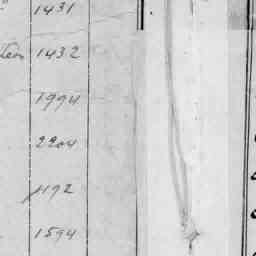 1431
1432
1994
2204
1192
1594